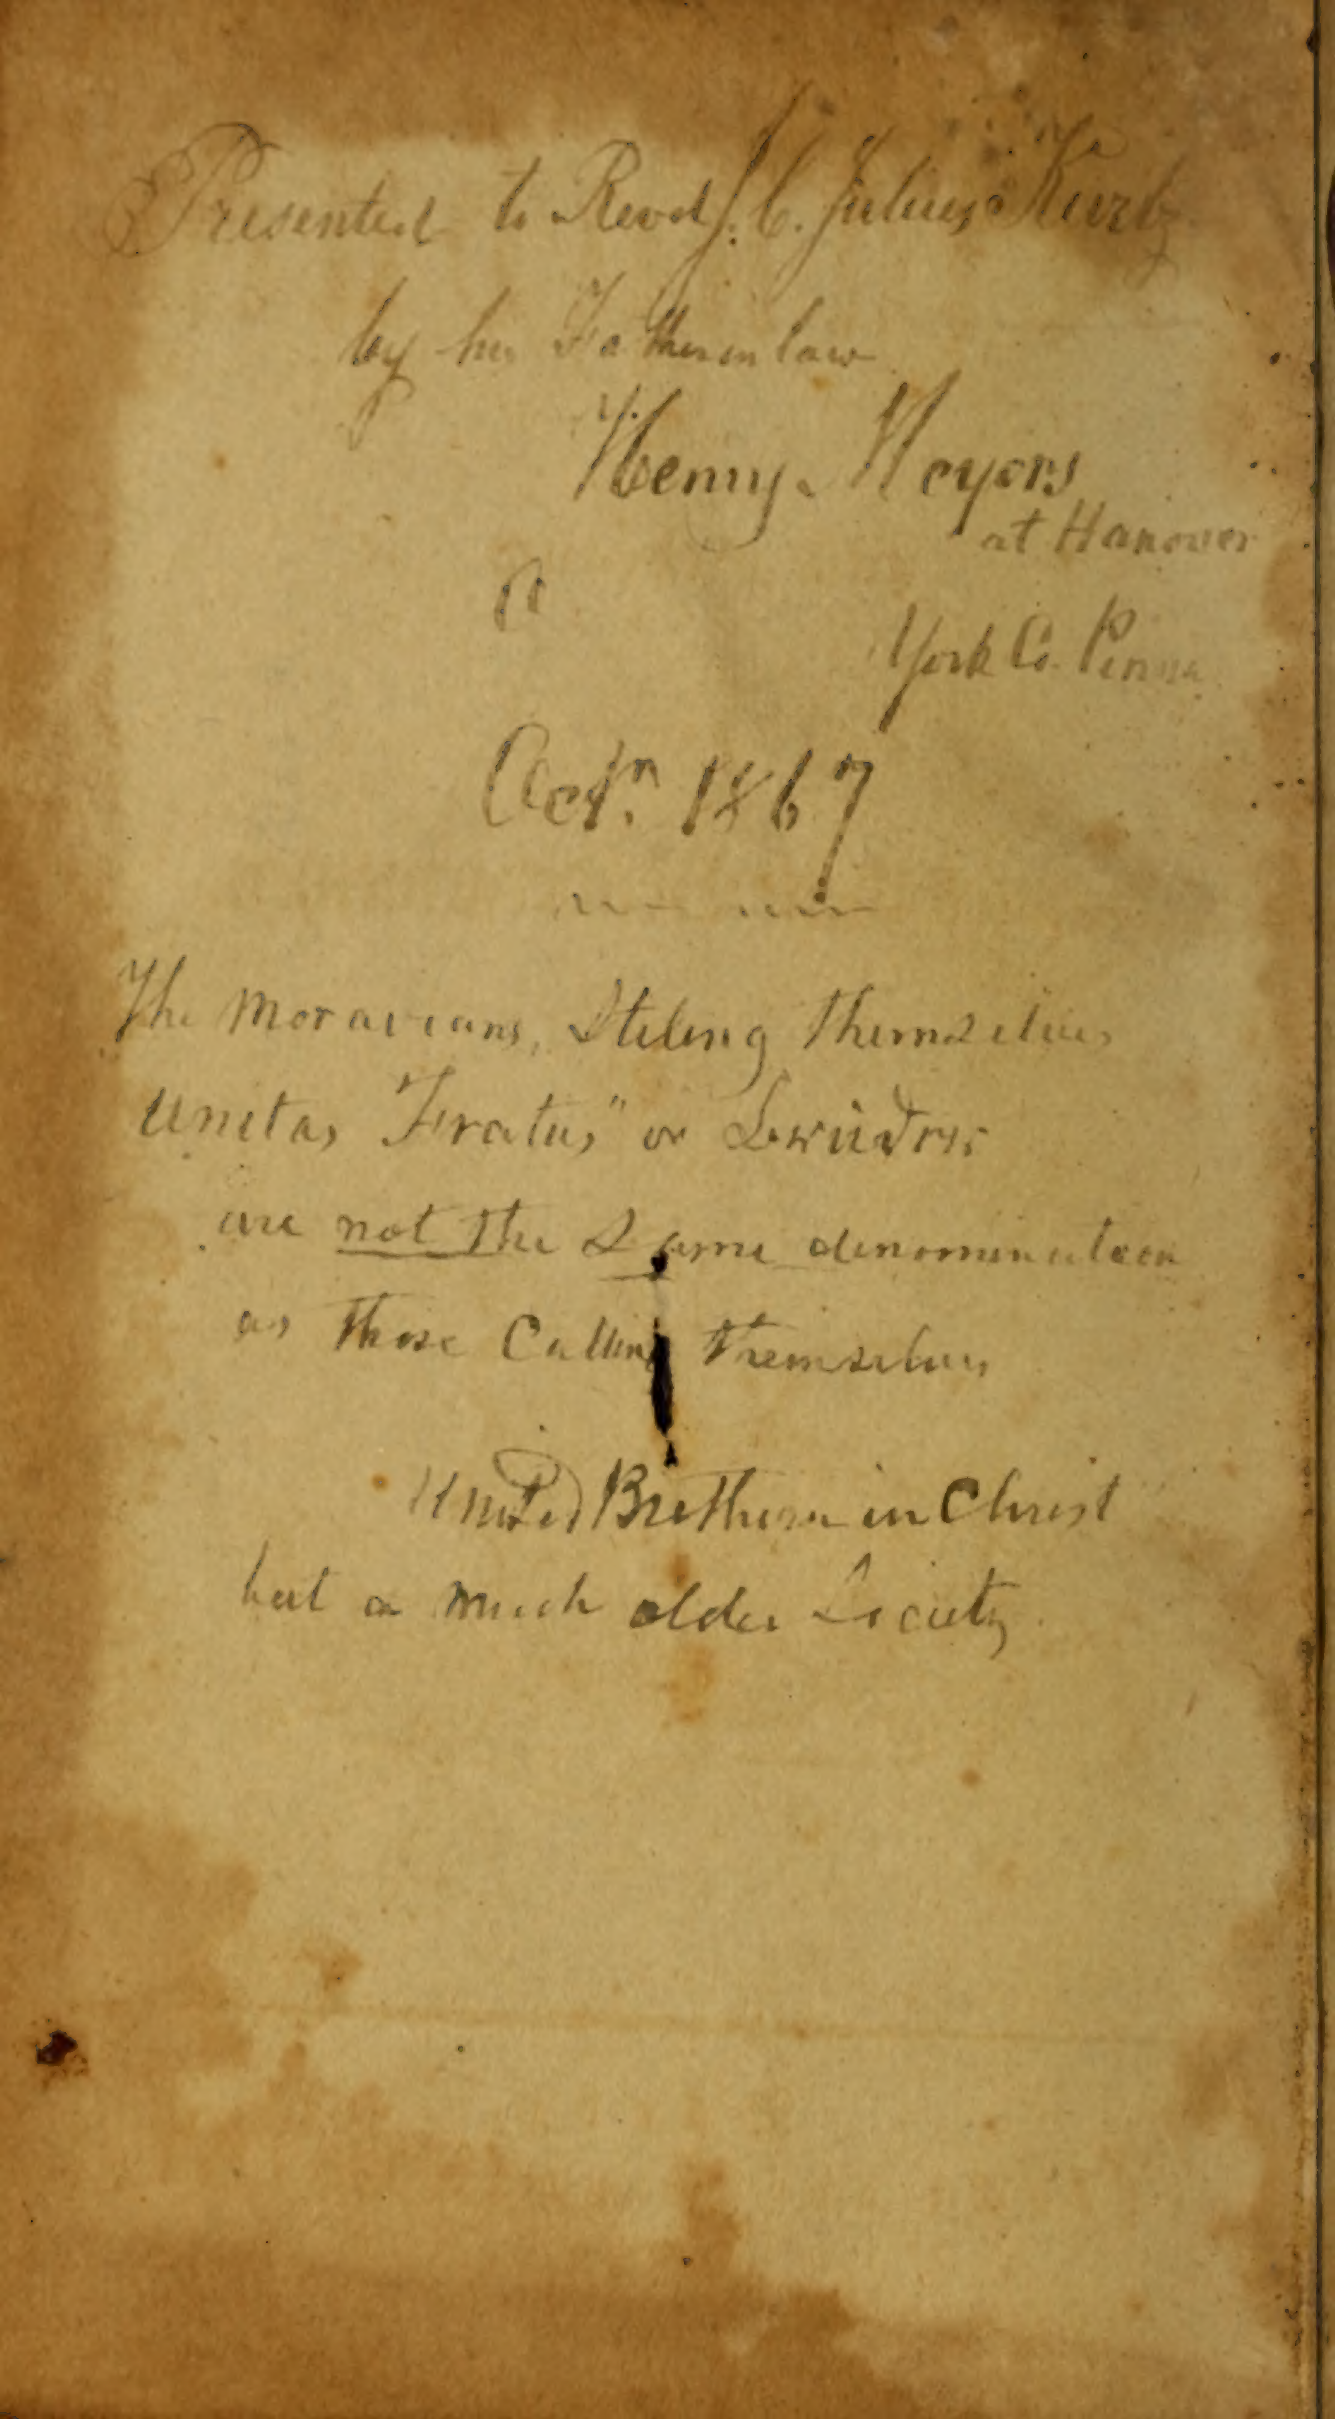 Presented to Revd J. C. Julius Kurtz
by his Father in law
Henry Meyers
at Hanover
York Co. Penna
Octr. 1867
The Moravians, Stiling themselves
Unitas "Fratus" or
are not the Same denomination
as those Calling themselves
United Brethern in Christ
but a much older Society